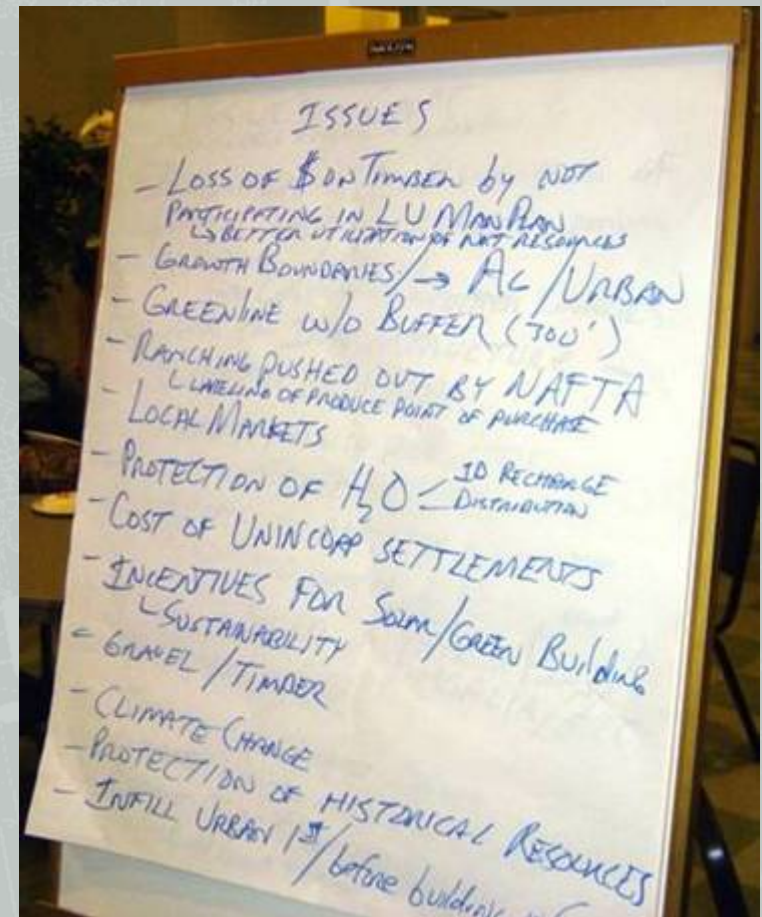 ISSUES
- LOSS OF $ ON TIMBER by NOT
PARTICIPATING IN LU MAN PLAN
↳ BETTER UTILIZATION OF NAT RESOURCES
- GROWTH BOUNDARIES/→ AG/URBAN
- GREENLINE w/o BUFFER (300')
- RANCHING PUSHED OUT BY NAFTA
└ LABELING OF PRODUCE POINT OF PURCHASE
- LOCAL MARKETS
- PROTECTION OF H₂O < ID RECHARGE
DISTRIBUTION
- COST OF UNINCORP SETTLEMENTS
- INCENTIVES FOR SOLAR/GREEN BUILDING
└ SUSTAINABILITY
- GRAVEL/TIMBER
- CLIMATE CHANGE
- PROTECTION OF HISTORICAL RESOURCES
- INFILL URBAN 1st/before building